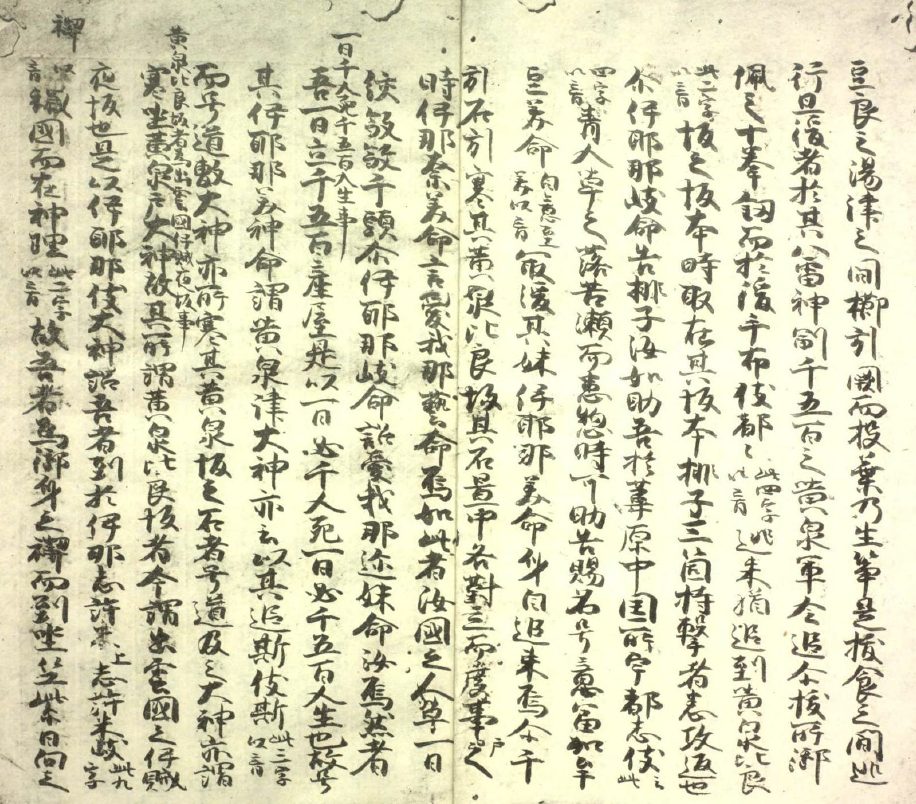 豆良之湯津之間櫛引闕而投棄乃生笋是拔食之間迯
行且後者於其八雷神副千五百之黄泉軍令追尒拔所御
佩之十拳劔而於後手布伎都々此四字以音迯来猶追到黄泉比良
此二字以音坂之坂本時取在其坂本桃子三箇待撃者悉攻返也
尒伊耶那岐命告桃子汝如助吾於葦原中国所宇都志伎此
四字以音青人草之落苦瀬而患惚時可助告賜名号意富加牟
豆美命自意至美以音最後其妹伊耶那美命身自追来焉尒千
引石引塞其黄泉比良坂其石置中各對立而度事戸之
時伊那奈美命言愛我那勢命為如此者汝國之人草一日
絞千頭尒伊耶那岐命詔愛我那迩妹命汝為然者
一日千人死千五百人生事
吾一日立千五百産屋是以一日必千人死一日必千五百人生也故号
其伊耶那美神命謂黄泉津大神亦云以其追斯伎斯此三字以音
而号道敷大神亦所塞其黄泉坂之石者号道反之大神亦謂
黄泉比良坂者為出雲國伊賦夜坂事
塞坐黄泉戸大神故其所謂黄泉比良坂者今謂出雲國之伊賦
夜坂也是以伊耶那伎大神詔吾者到於伊那志許米上志許米岐此九字
禊
以音穢國而在祁理此二字以音故吾者為御身之禊而到坐竺紫日向之